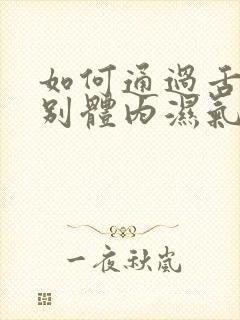 如何通過舌
別體內濕氣
一夜秋嵐